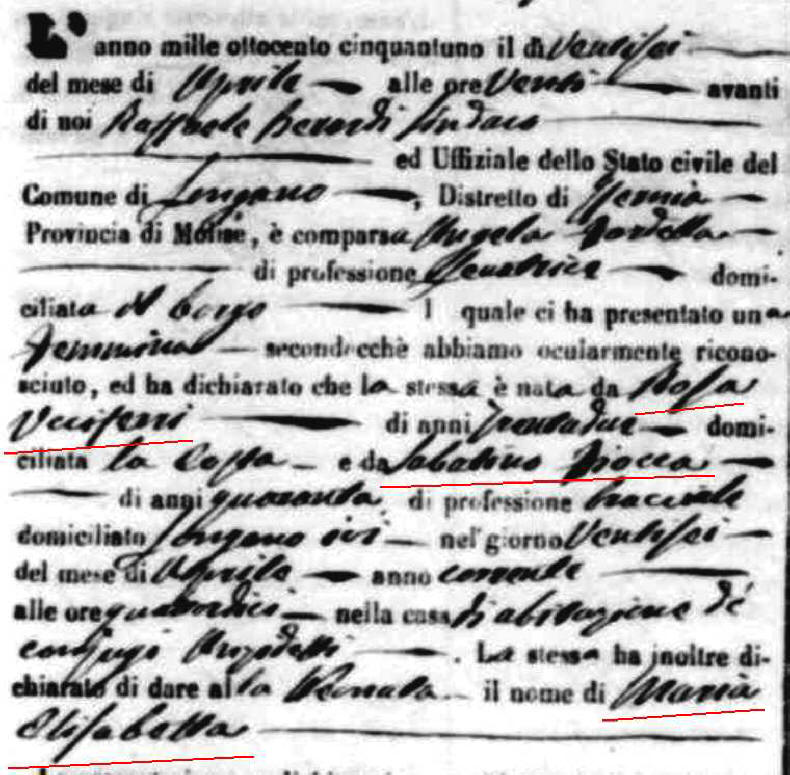 L'anno mille ottocento cinquantuno il dì Ventisei
del mese di Aprile alle ore Venti avanti
di noi Raffaele Berardi Sindaco
ed Uffiziale dello Stato civile del
Comune di Longano, Distretto di Isernia
Provincia di Molise, è comparsa Angela
di professione Levatrice domi-
ciliata al borgo l quale ci ha presentato una
Femmina secondecchè abbiamo ocularmente ricono-
sciuto, ed ha dichiarato che la stessa è nata da Rosa
Ucciferri di anni trentadue domi-
ciliata la Costa e da Sabatino
di anni quaranta di professione bracciale
domiciliato Longano ivi nel giorno Ventisei
del mese di Aprile anno corrente
alle ore quattordici nella casa di abitazione de'
conjugi suddetti. La stessa ha inoltre di-
chiarato di dare alla Neonata il nome di Maria
Elisabetta